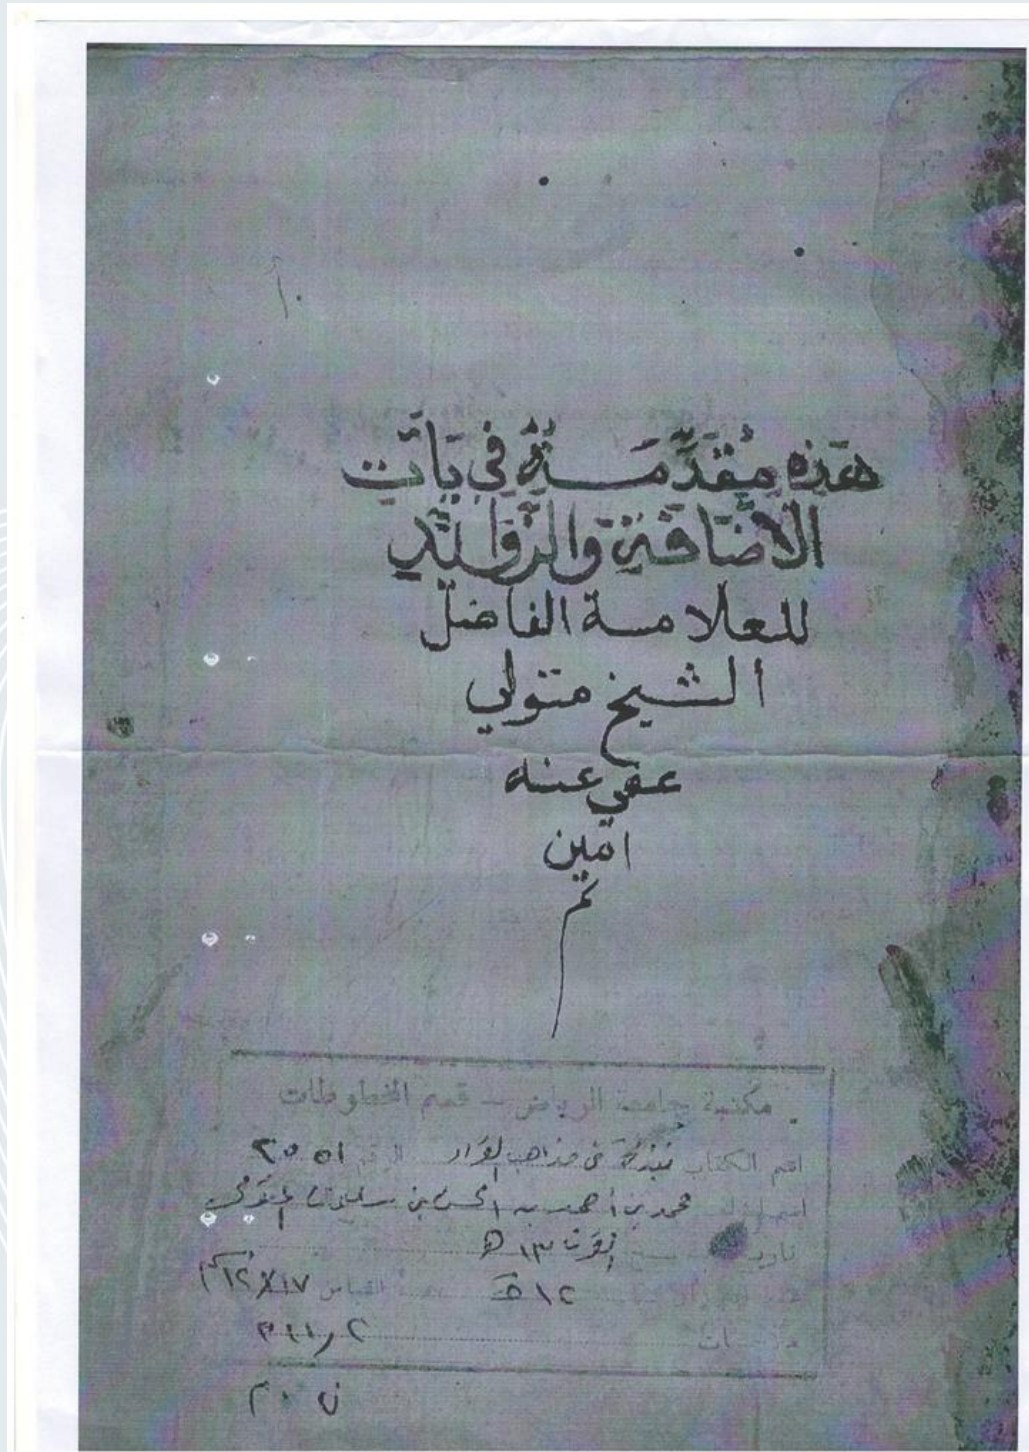 هَذِهِ مُقَدِّمَةٌ فِي يَاتِ
الاضَافَةِ وَالزَّوَائِدِ
للعلامة الفاضل
الشيخ متولي
عفي عنه
امين
تم
مكتبة جامعة الرياض - قسم المخطوطات
اسم الكتاب نبذة في مذاهب القراء الرقم ٢٥٥١
محمد بن أحمد بن الحسن بن سليمان
القرن ١٣ هـ
١٢ ق القياس ١٧×١٢ سم
٢١١٫٢